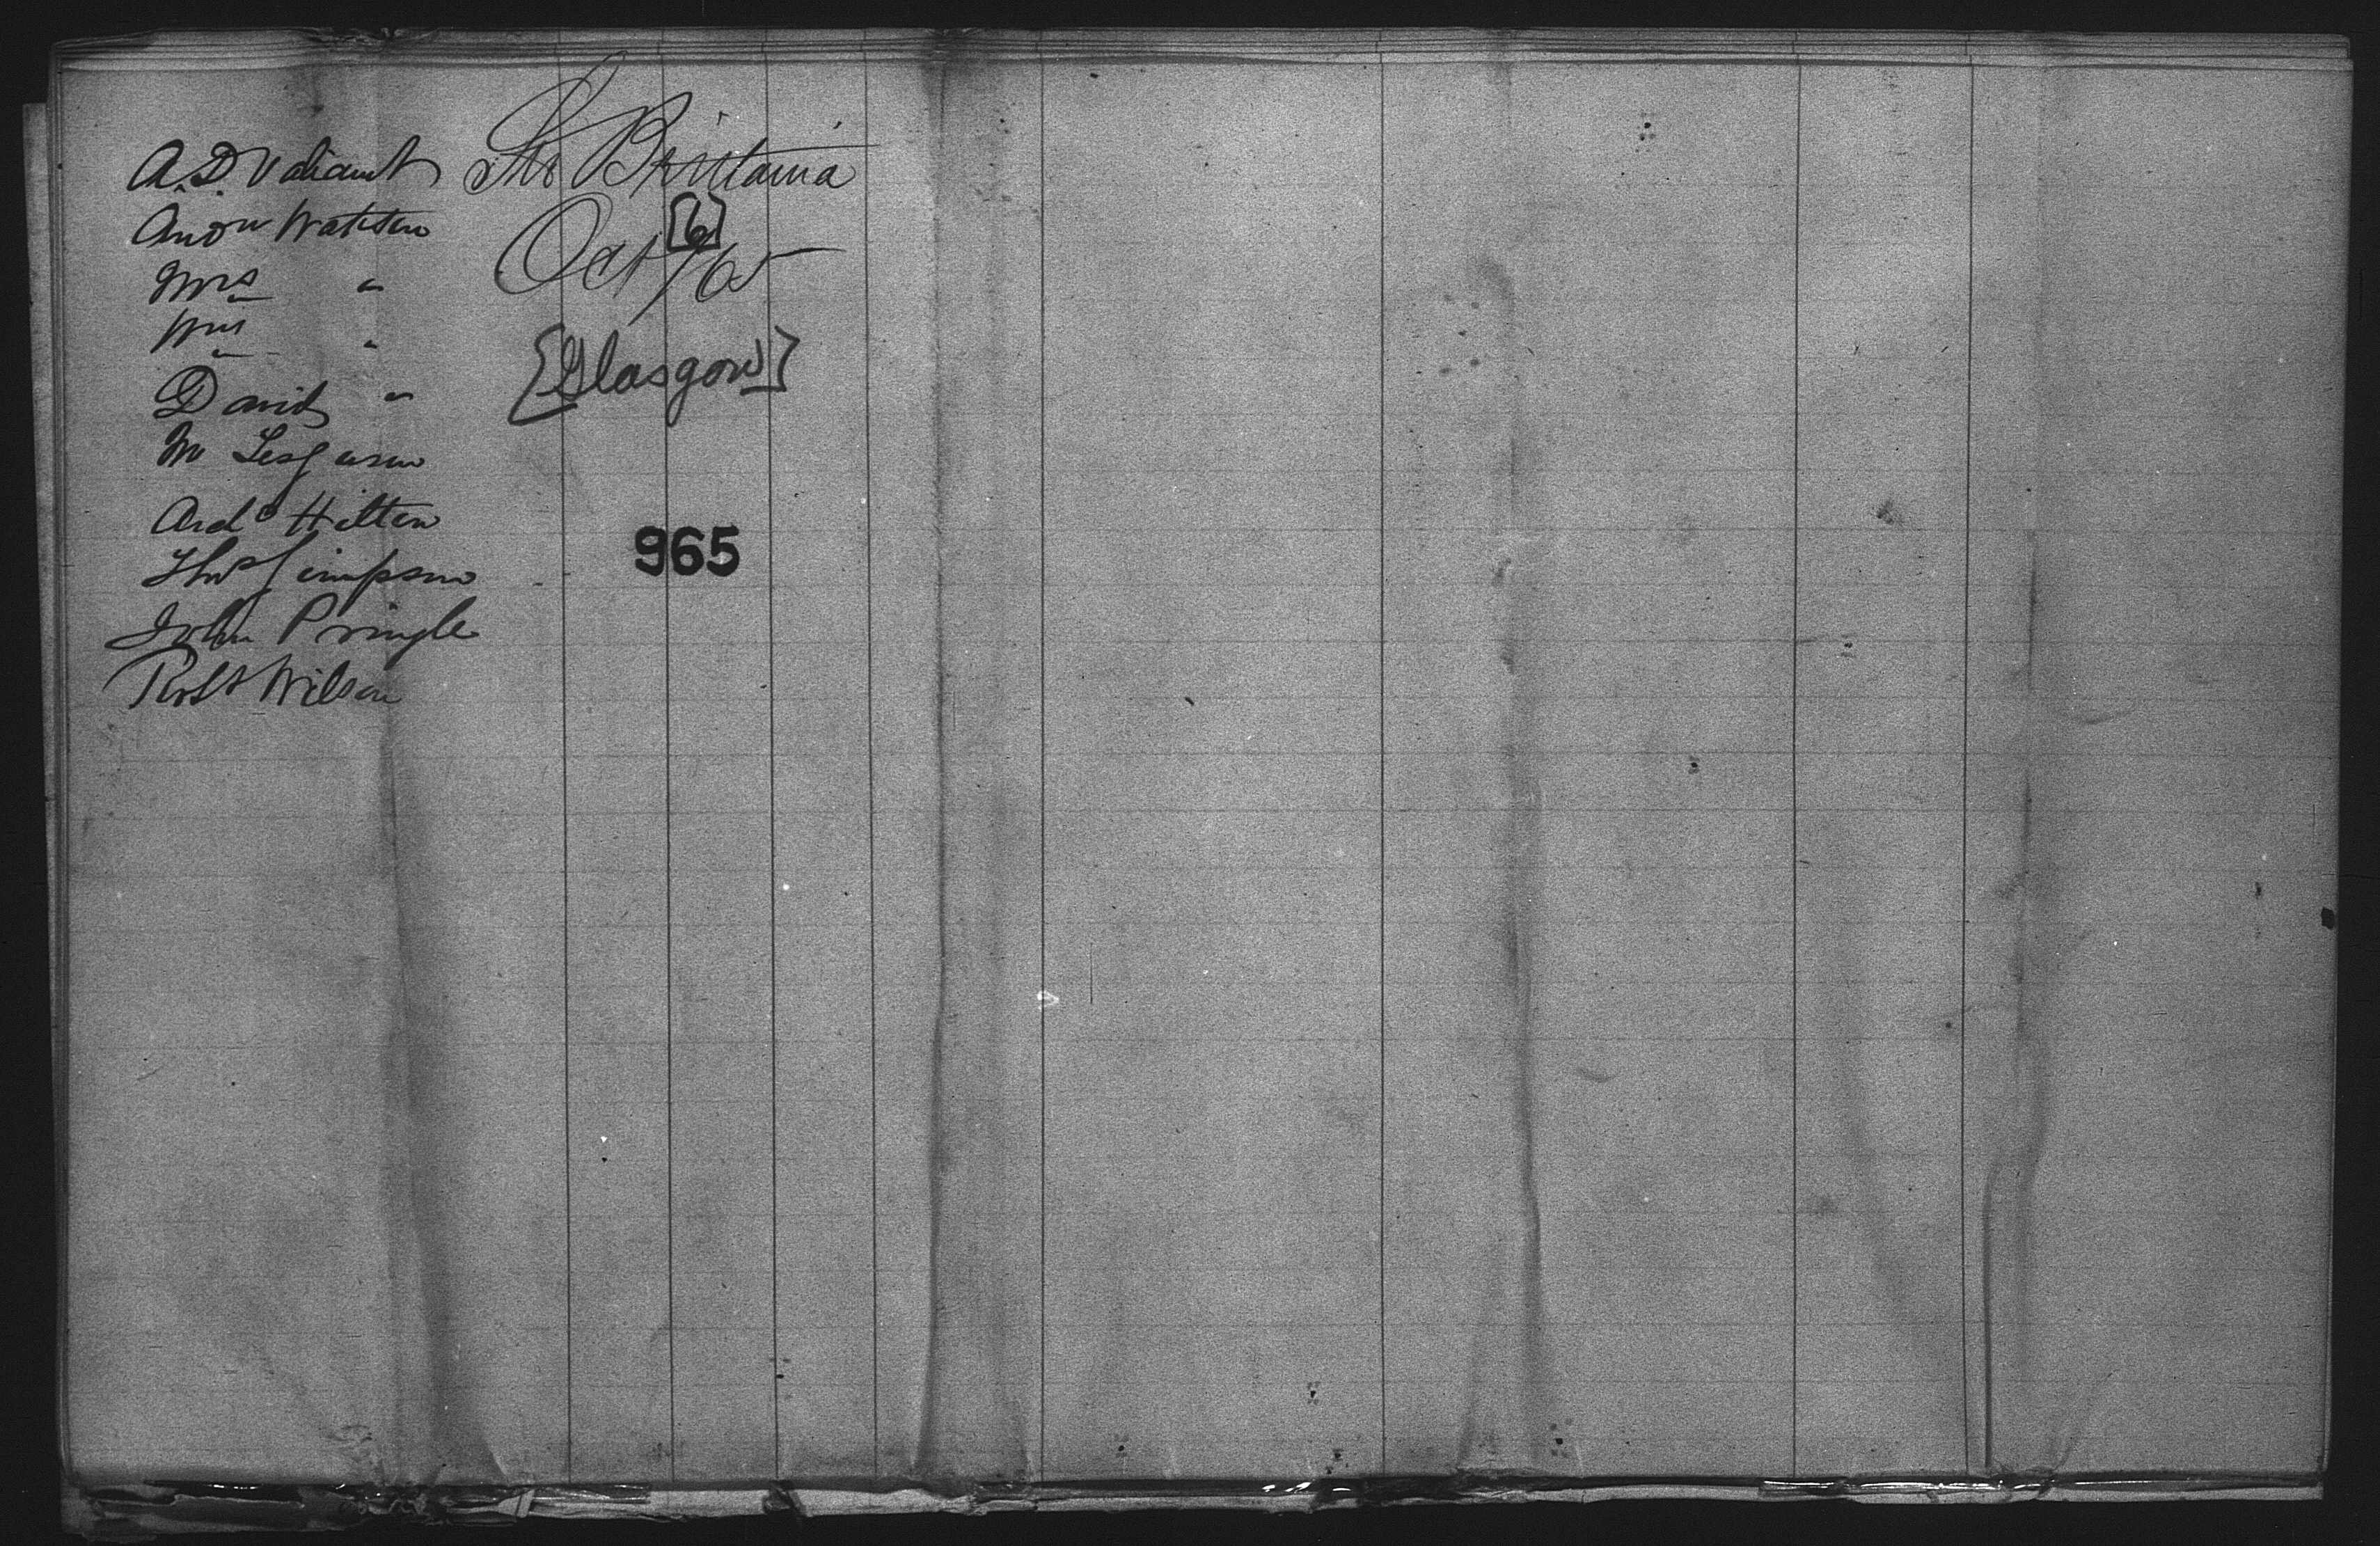 A. D. Valiant
Andw Watson
Mrs "
Wm "
David "
M Ferguson
Archd Hilton
Thos Simpson
John Pringle
Robt Wilson
Str Brittania
Oct [6] /65
[Glasgow]
965